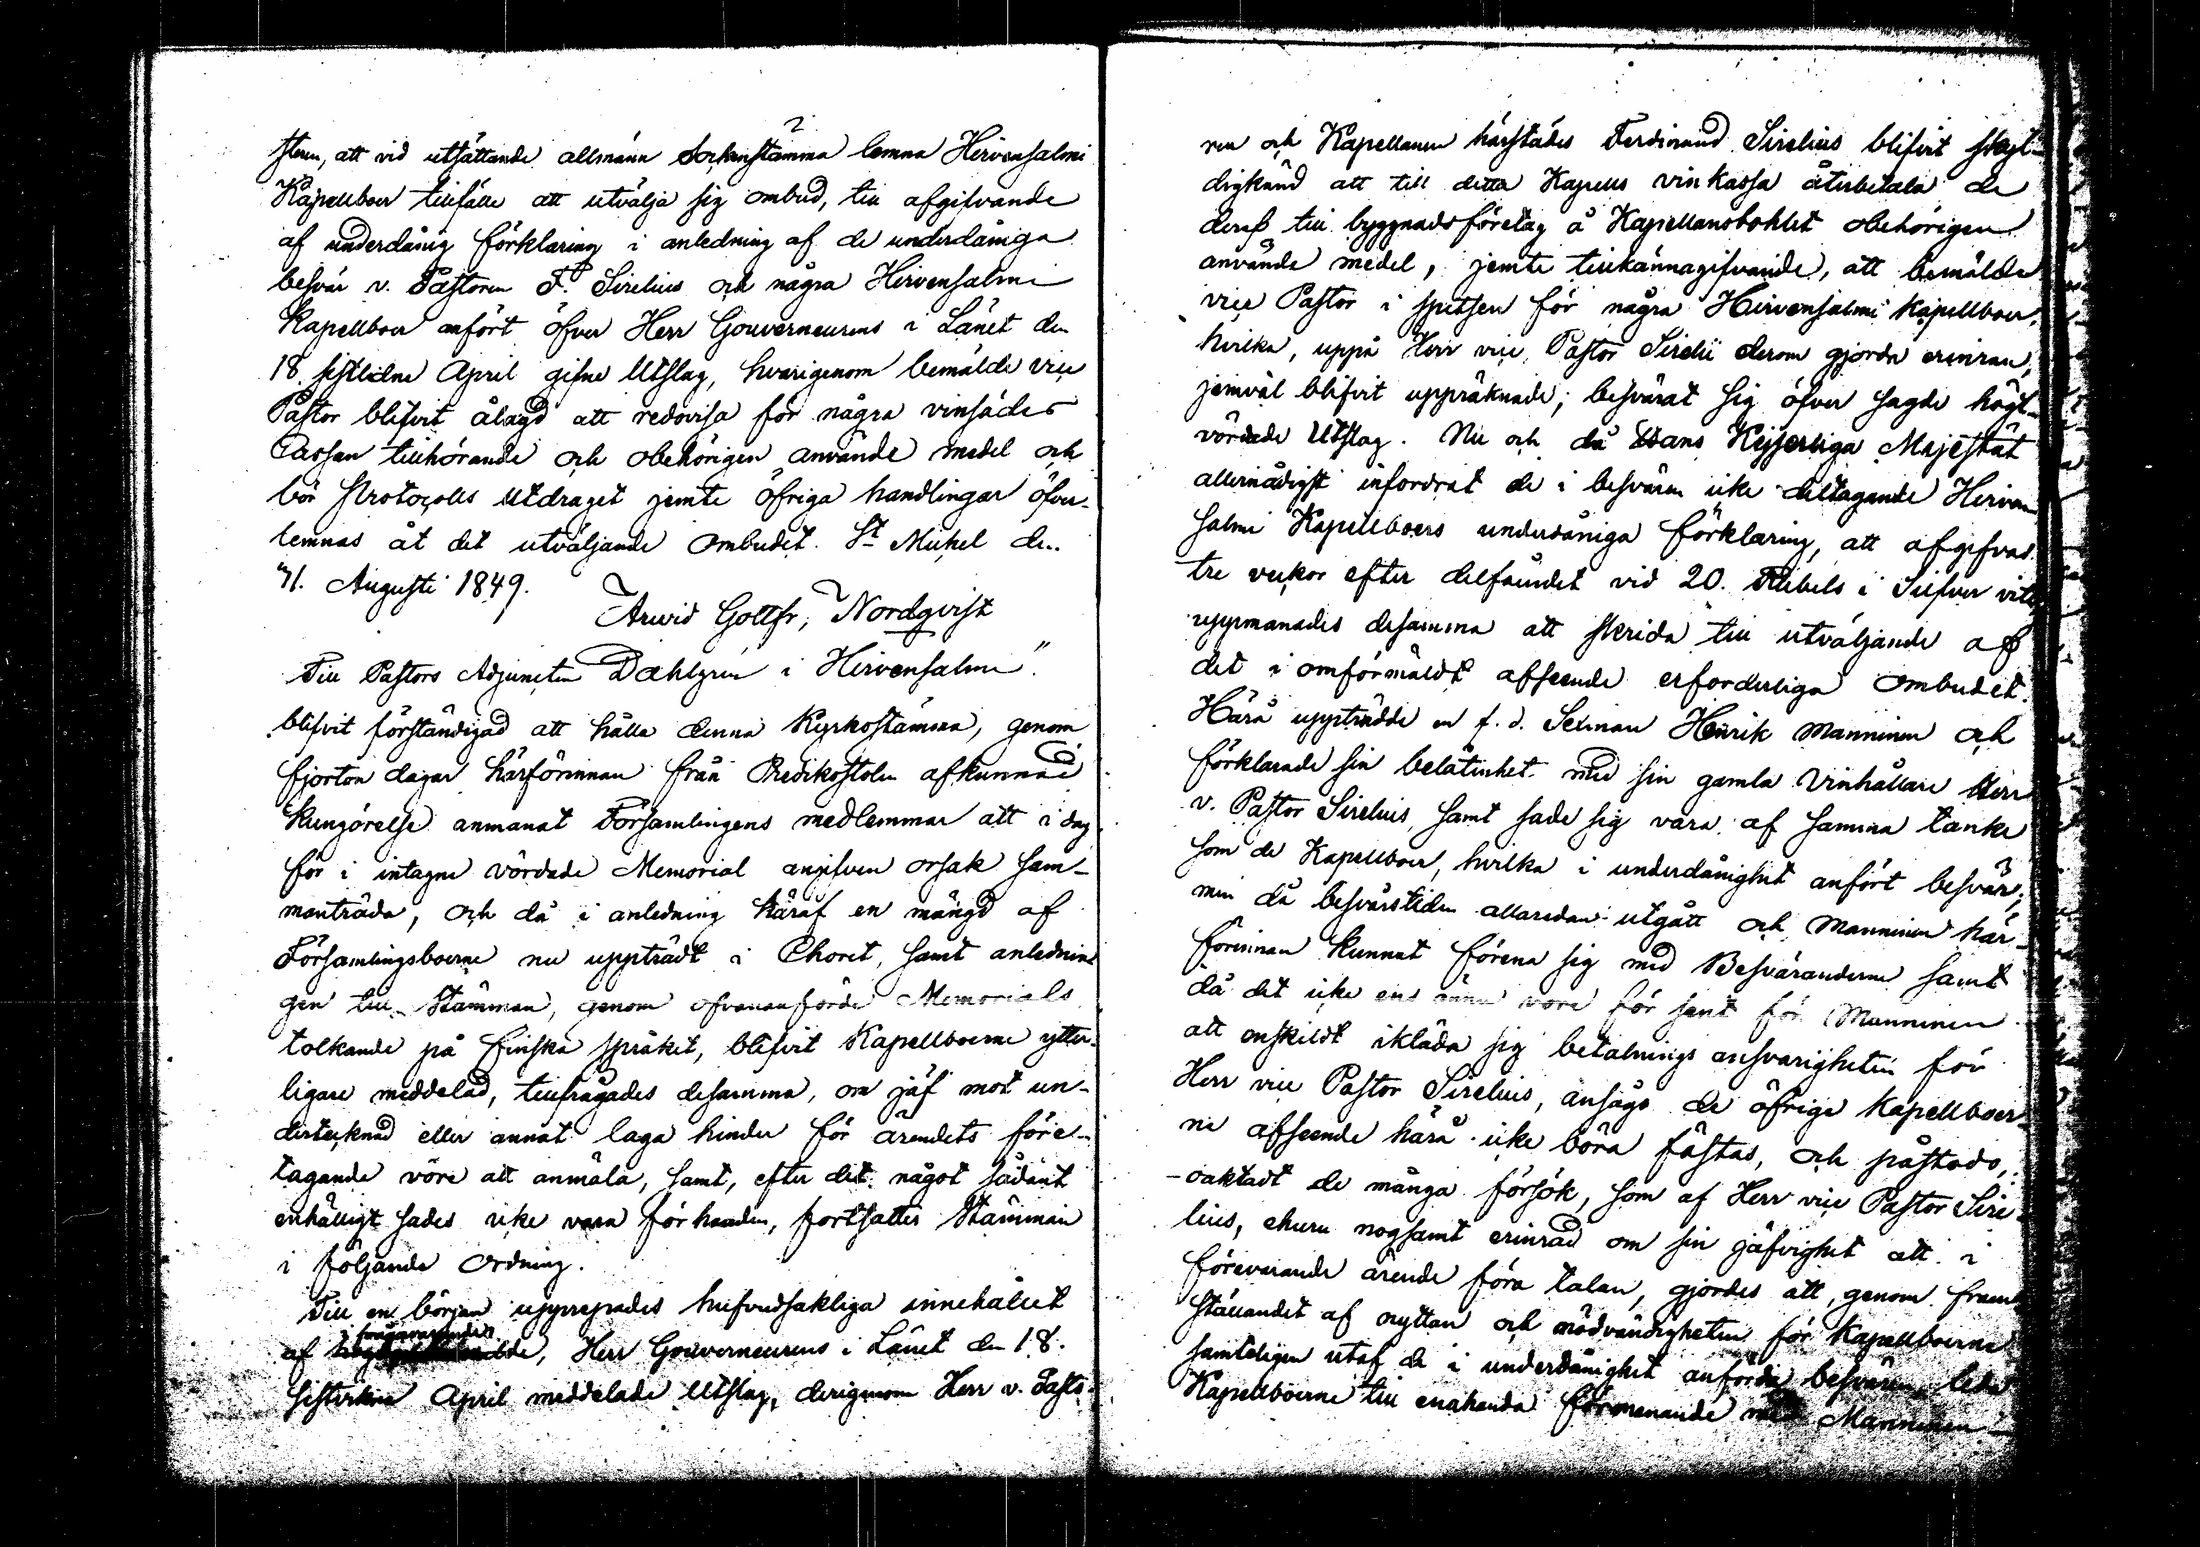 sten, att vid utsättande allmänn Sockenstämma lemna Hirvensalmi
Kapellboer tillfälle att utvälja sig ombud, till afgifvande
af underdånig förklaring i anledning af de underdåniga
besvär v. Pastoren F. Sirelius och några Hirvensalmi
Kapellboer anfört öfver Herr Gouverneurens i Länet den
18 sistledne April gifne Utslag, hvarigenom bemälde vice
Pastor blifvit ålagd att redovisa för några vinsädes
Cassan tillhörande och obehörigen använde medel och
bör Protocolls Utdraget jemte öfriga handlingar öfver-
lemnas åt det utväljande Ombudet. St Michel den
31. Augusti 1849.
Arwid Gottfr, Nordqvist
Till Pastors Adjuncten Dahlgren i Hirvensalmi"
blifvit förständigad att hålla denna Kyrkostämma, genom
fjorton dagar härförinnan från Predikostolen afkunnad
Kungörelse anmanat Församlingens medlemmar att i dag
för i intagne vördade Memorial angifven orsak sam-
manträda, och då i anledning häraf en mängd af
Församlingsboerne nu uppträdt i Choret, samt anlednin-
gen till Stämman, genom ofvananförde Memorials
tolkande på finska språket, blifvit Kapellboerne ytter-
ligare meddelad, tillfrågades desamma, om jäf mot un-
dertecknad eller annat laga hinder för ärendets före-
tagande vore att anmäla, samt, efter det något sådant
enhälligt sades icke vara förhanden, fortsattes Stämman
i följande Ordning.
Till en början upprepades hufvudsakliga innehållet
af, Herr Gouverneurens i Länet den 18.
sistvikne April meddelade Utslag, derigenom Herr v. Pasto-
ren och Kapellanen härstädes Ferdinand Sirelius blifvit skyl-
digkänd att till detta Kapells vinkassa återbetala de
derass till byggnadsföretag å Kapellansbohlet obehörigen
använde medel, jemte tillkännagifvande, att bemälde
vice Pastor i spetsen för några Hirvensalmi Kapellboer,
hvilka, uppå Herr vice Pastor Sirelii derom gjorda erinran,
jemväl blifvit uppräknade, besvärat sig öfver sagde högt-
vördade Utslag. Nu och då Hans Kejserliga Majestät
allernådigst infordrat de i besvären icke deltagande Hirven-
salmi Kapellboers underdåniga förklaring, att afgifvas
tre veckor efter delfåendet vid 20. Rubels i Silfver vite
uppmanades desamma att skrida till utväljande af
det i omförmäldt afseende erforderliga Ombudet.
Härå uppträdde en f. d. Sexman Henrik Manninen och
förklarade sin belåtenhet med sin gamla Vinhållare Herr
v. Pastor Sirelius, samt sade sig vara af samma tanke
som de Kapellboer, hvilka i underdånighet anfört besvär;
men då besvärstiden allaredan utgått och Manninen här-
förinnan kunnat förena sig med Besväranderne samt
då det icke ens ännu vore för sent för Manninen
att enskildt ikläda sig betalnings ansvarigheten för
Herr vice Pastor Sirelius, ansågo de öfrige Kapellboer-
ne afseende härå icke böra fästas, och påstodo,
-oaktadt de många försök, som af Herr vice Pastor Sire-
lius, ehuru nogsamt erinrad om sin jäfvighet att i
förevarande ärende föra talan, gjordes att, genom fram-
ställandet af nyttan och nödvändigheten för Kapellboerne
samteligen utaf de i underdånighet anförda besvären, leda
Kapellboerne till enahanda förmenande med Manninen-